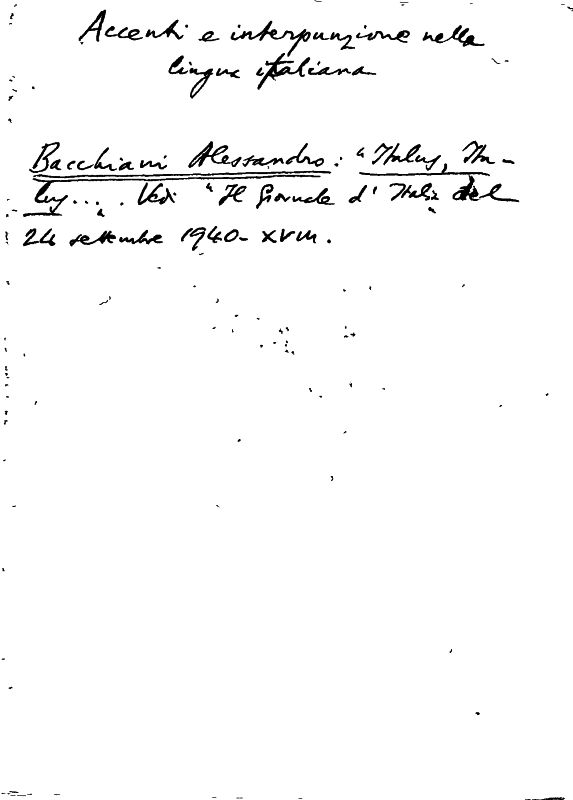 Accenti e interpunzione nella
lingua italiana
Bacchiani Alessandro: "Italus, Ita-
lus... . Vedi "Il Giornale d'Italia" del
24 settembre 1940-XVIII.